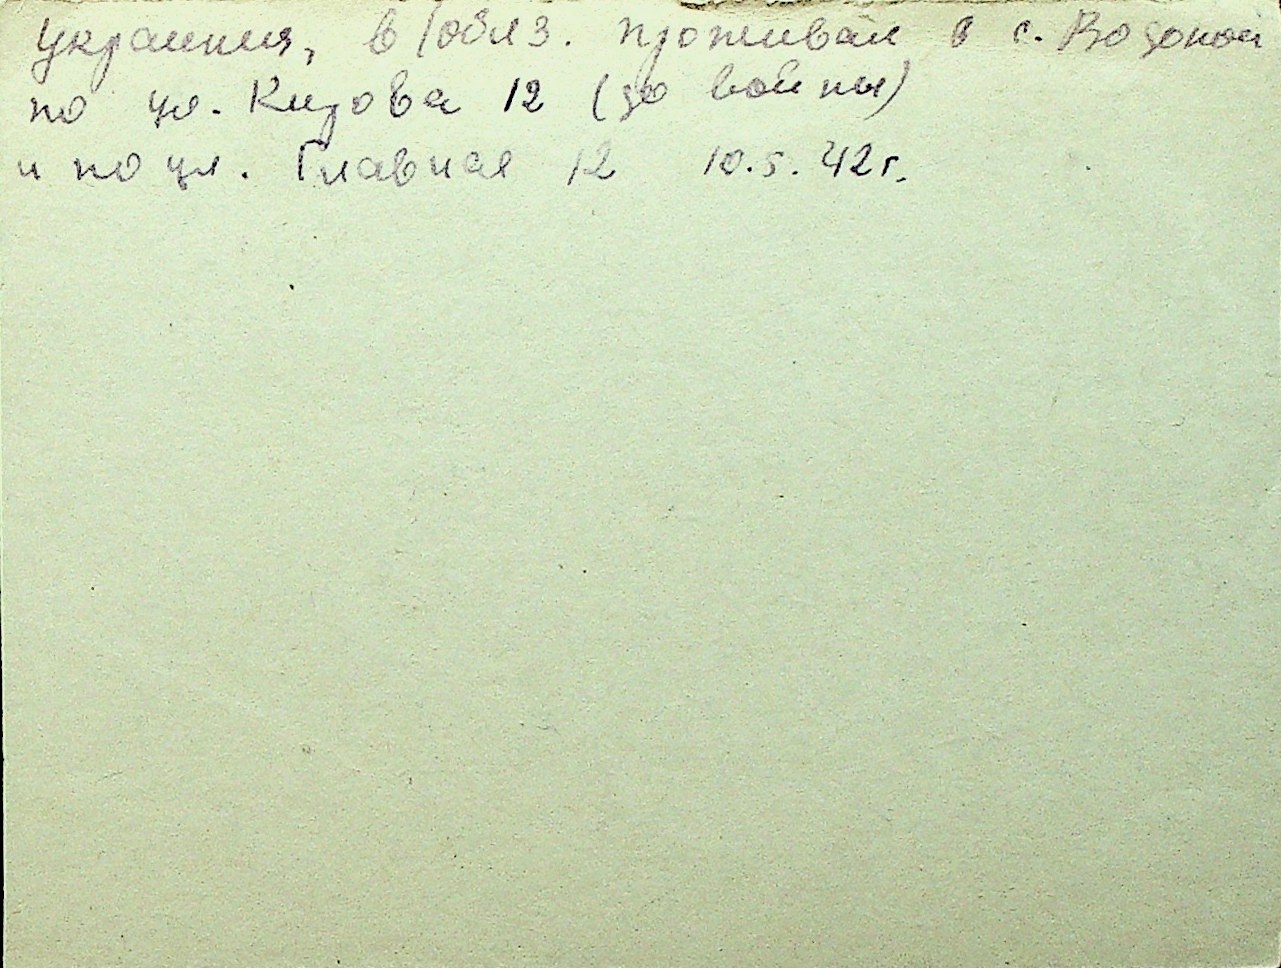 украинка, в/обяз. проживал в с. Водяной
по ул. Кирова 12 (до войны)
и по ул. Главная 12 10.5.42г.